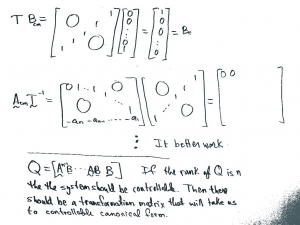 T B_cm = [0 1 1 1 0] [0 0 0 ⋮ 0 1] = [1 0 0 ⋮ 0] = B_c
A_cm I^-1 = [0 1 ⋯ 1 0 -a_n -a_n-1 ⋯ -a_1] [0 1 1 1 0] = [0 0
⋮ It better work
Q = [A^n-1B ⋯ AB B] If the rank of Q is n
the the system should be controllable. Then there
should be a transformation matrix that will take us
to controllable canonical form.